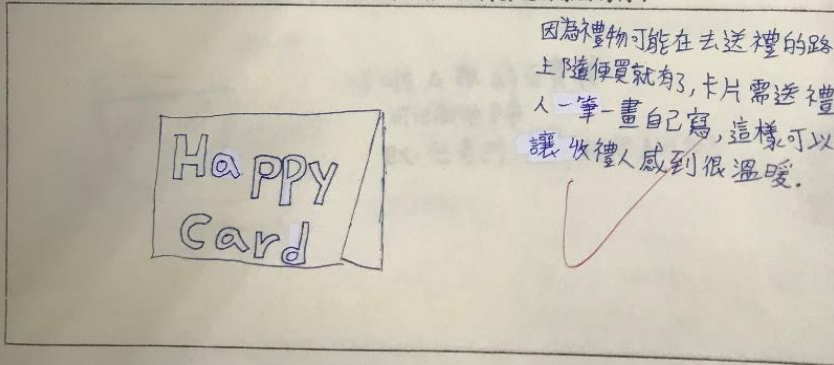 Happy
Card
因為禮物可能在去送禮的路
上隨便買就有了,卡片需送禮
人一筆一畫自己寫,這樣可以
讓收禮人感到很溫暖.